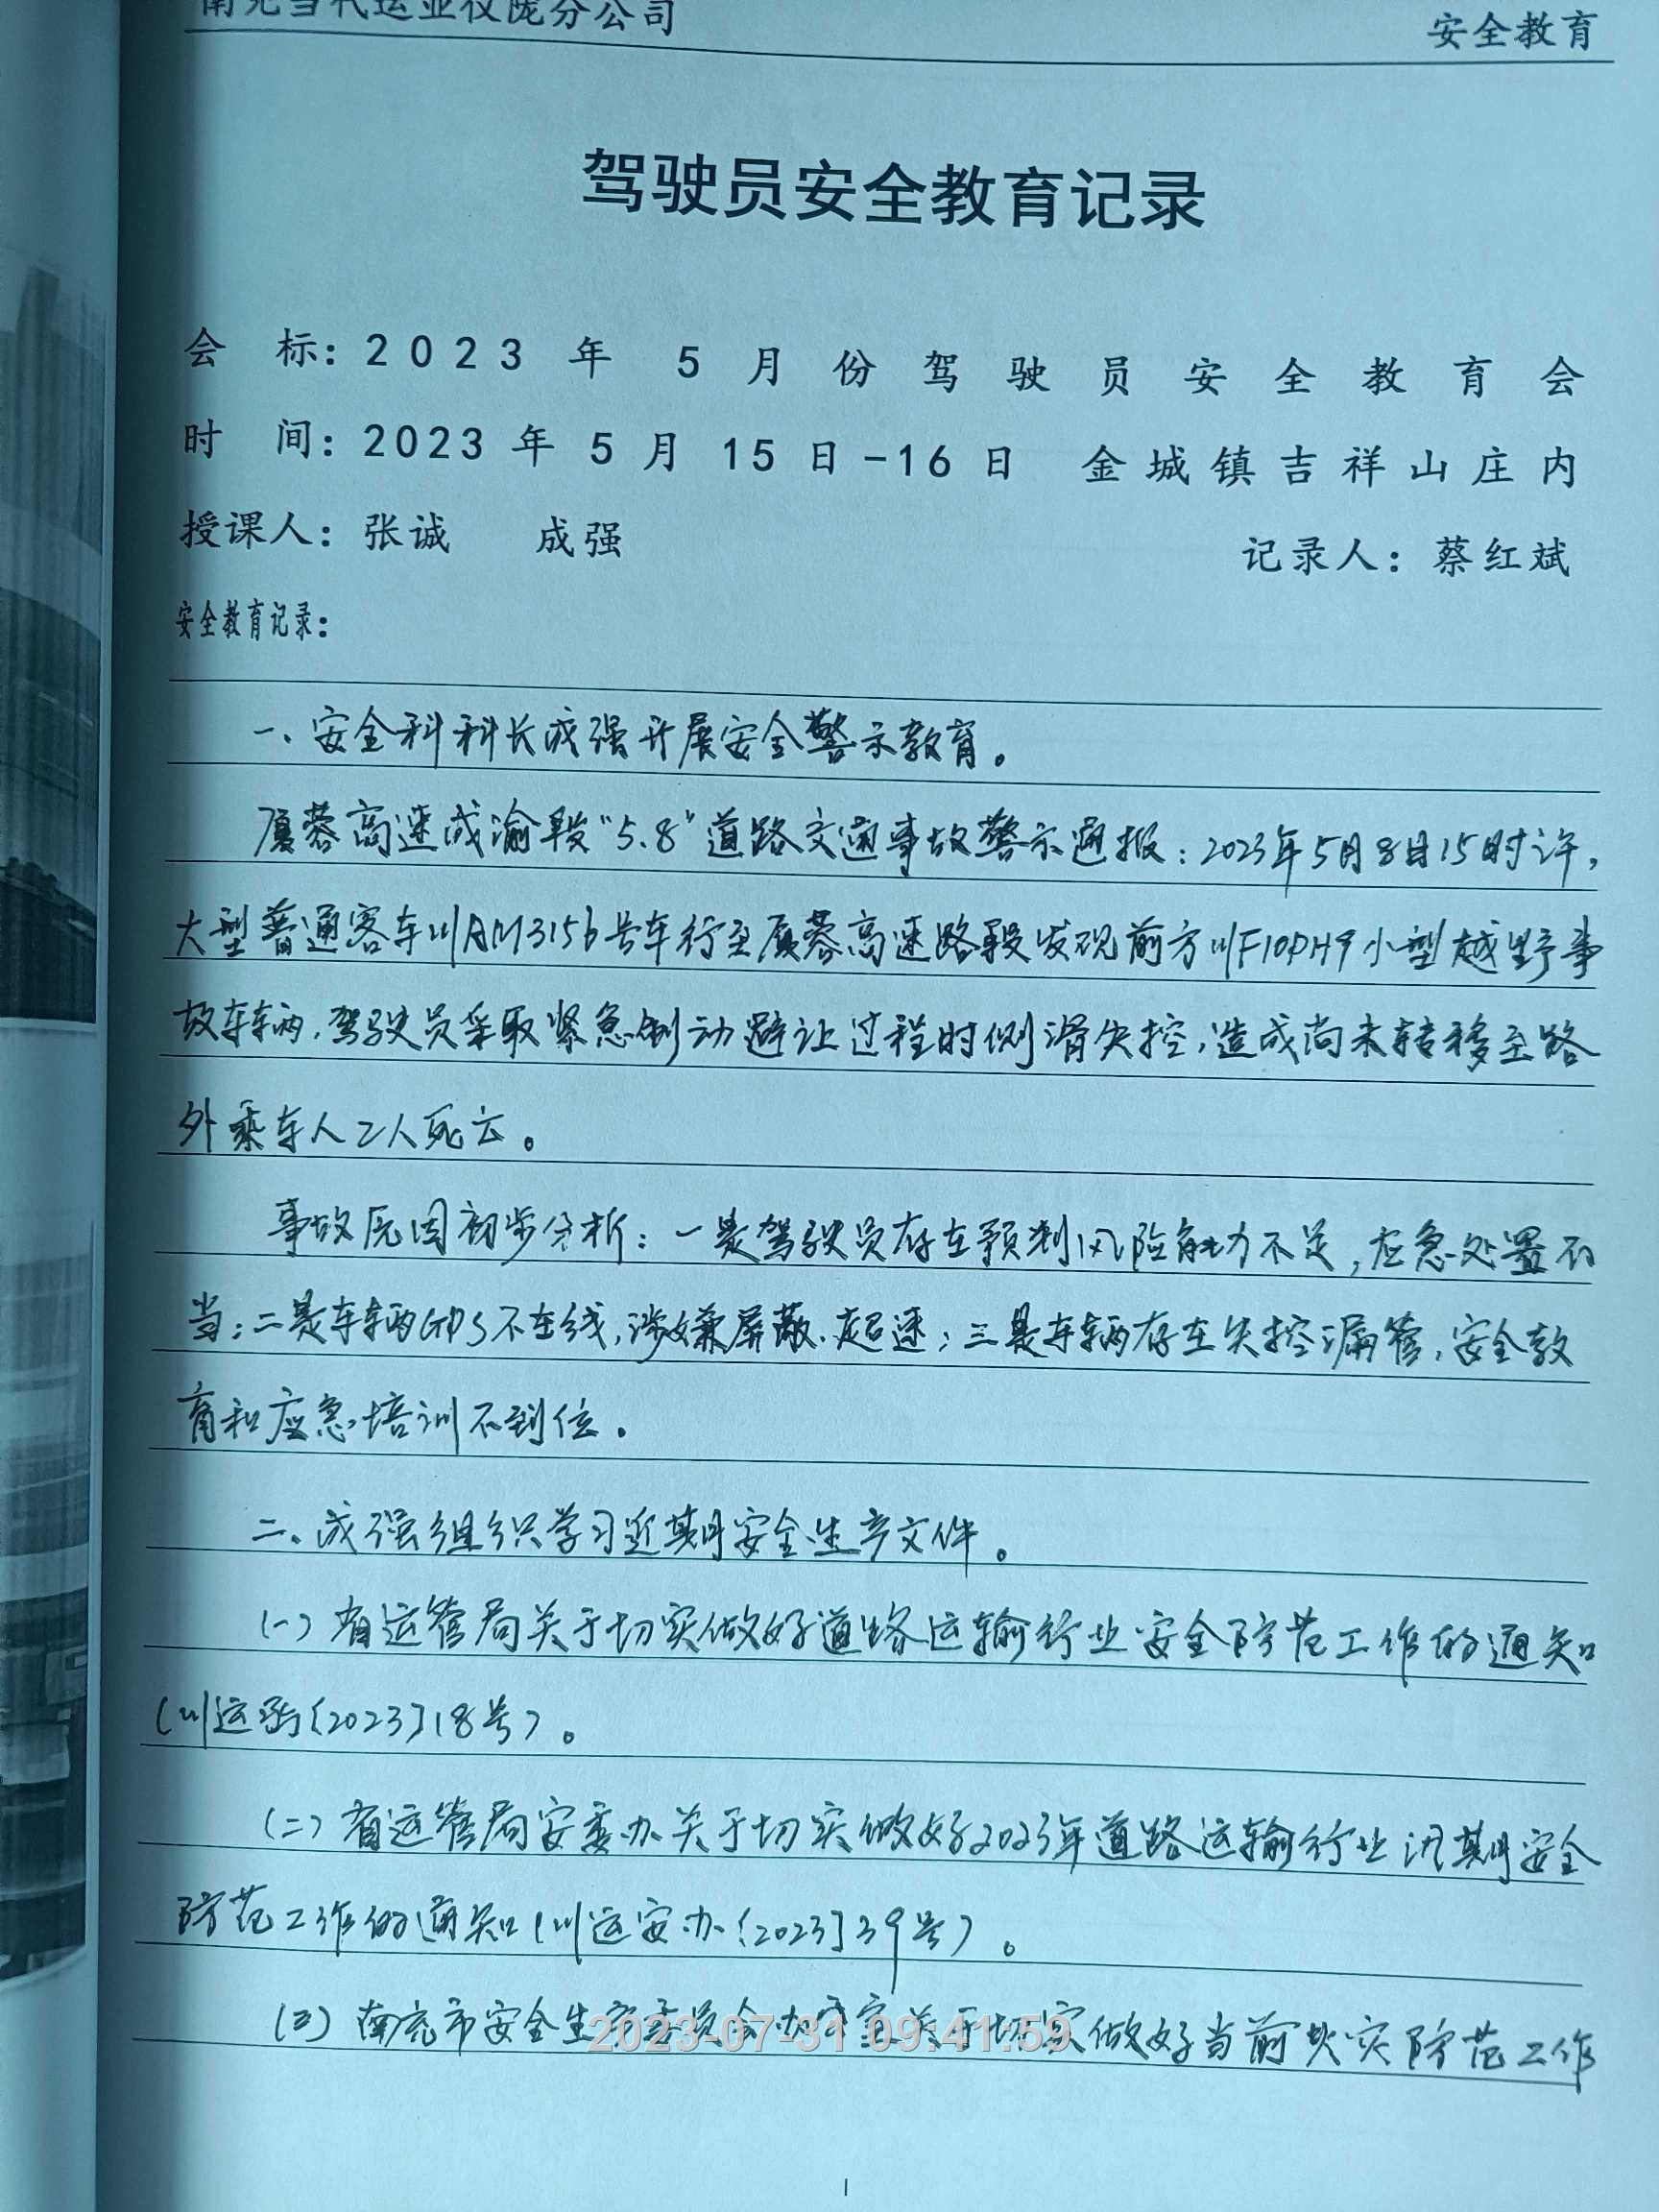 南充当代运业仪陇分公司
安全教育
驾驶员安全教育记录
会 标：2023 年 5 月 份 驾 驶 员 安 全 教 育 会
时 间：2023 年 5 月 15 日-16 日 金城镇吉祥山庄内
授课人：张诚 成强 记录人：蔡红斌
安全教育记录：
一、安全科科长成强开展安全警示教育。
厦蓉高速成渝段“5.8”道路交通事故警示通报：2023年5月8日15时许，
大型普通客车川AM3156号车行至厦蓉高速路段发现前方川F10PH9小型越野事
故车辆，驾驶员采取紧急制动避让过程时侧滑失控，造成尚未转移至路
外乘车人二人死亡。
事故原因初步分析：一是驾驶员存在预判风险能力不足，应急处置不
当；二是车辆GPS不在线，涉嫌屏蔽、超速；三是车辆存在失控漏管，安全教
育和应急培训不到位。
二、成强组织学习近期安全生产文件。
（一）省运管局关于切实做好道路运输行业安全防范工作的通知
（川运函〔2023〕18号）。
（二）省运管局安委办关于切实做好2023年道路运输行业汛期安全
防范工作的通知（川运安办〔2023〕39号）。
（三）南充市安全生产委员会办公室关于切实做好当前火灾防范工作
2023-07-31 09:41:59
1